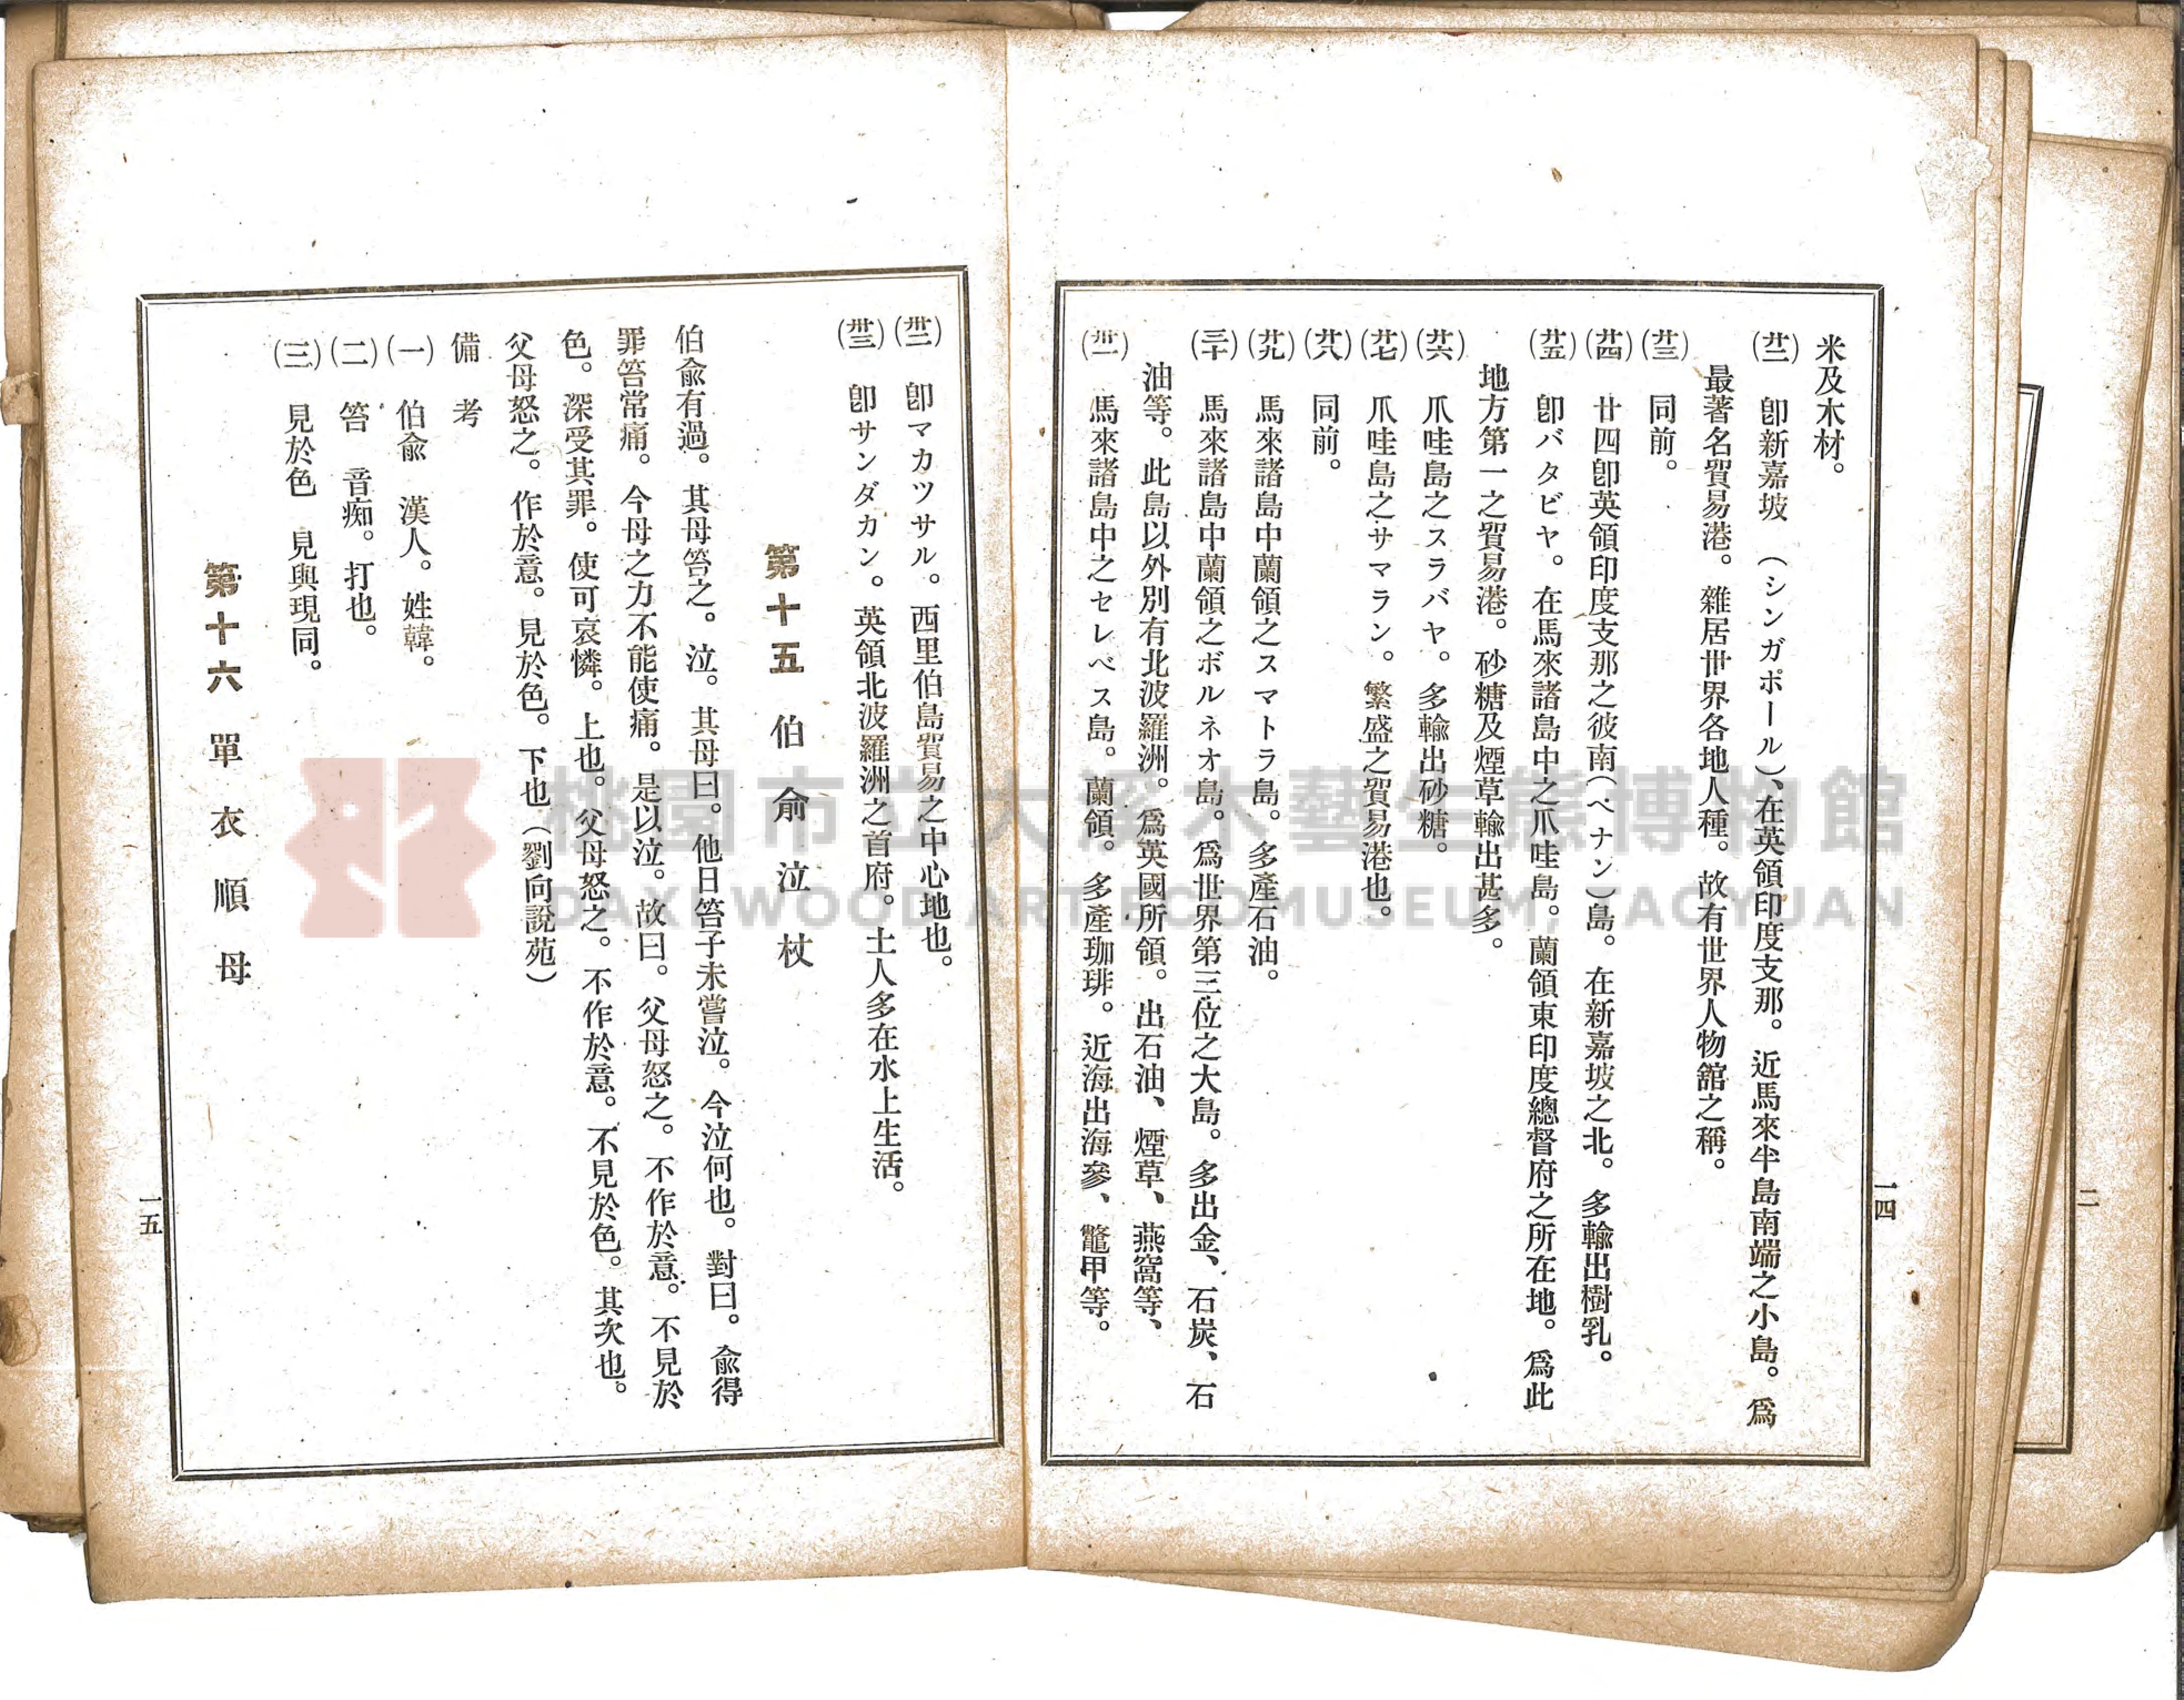 米及木材。
(廿二)　卽新嘉坡　(シンガポール)、在英領印度支那。近馬來半島南端之小島。爲
最著名貿易港。雜居世界各地人種。故有世界人物舘之稱。
(廿三)　同前。
(廿四)　廿四卽英領印度支那之彼南(ペナン)島。在新嘉坡之北。多輸出樹乳。
(廿五)　卽バタビヤ。在馬來諸島中之爪哇島。蘭領東印度總督府之所在地。爲此
地方第一之貿易港。砂糖及煙草輸出甚多。
(廿六)　爪哇島之スラバヤ。多輸出砂糖。
(廿七)　爪哇島之サマラン。繁盛之貿易港也。
(廿八)　同前。
(廿九)　馬來諸島中蘭領之スマトラ島。多產石油。
(三十)　馬來諸島中蘭領之ボルネオ島。爲世界第三位之大島。多出金、石炭、石
油等。此島以外別有北波羅洲。爲英國所領。出石油、煙草、燕窩等、
(卅一)　馬來諸島中之セレベス島。蘭領。多產珈琲。近海出海參、鼈甲等。
一四
(卅二)　卽マカツサル。西里伯島貿易之中心地也。
(卅三)　卽サンダカン。英領北波羅洲之首府。土人多在水上生活。
第十五　伯兪泣杖
伯兪有過。其母笞之。泣。其母曰。他日笞子未嘗泣。今泣何也。對曰。兪得
罪笞常痛。今母之力不能使痛。是以泣。故曰。父母怒之。不作於意。不見於
色。深受其罪。使可哀憐。上也。父母怒之。不作於意。不見於色。其次也。
父母怒之。作於意。見於色。下也(劉向說苑)
備　考
(一)　伯兪　漢人。姓韓。
(二)　笞　音痴。打也。
(三)　見於色　見與現同。
第十六　單衣順母
一五
二
桃園市立大溪木藝生態博物館
DAXI WOOD ART ECOMUSEUM, TAOYUAN